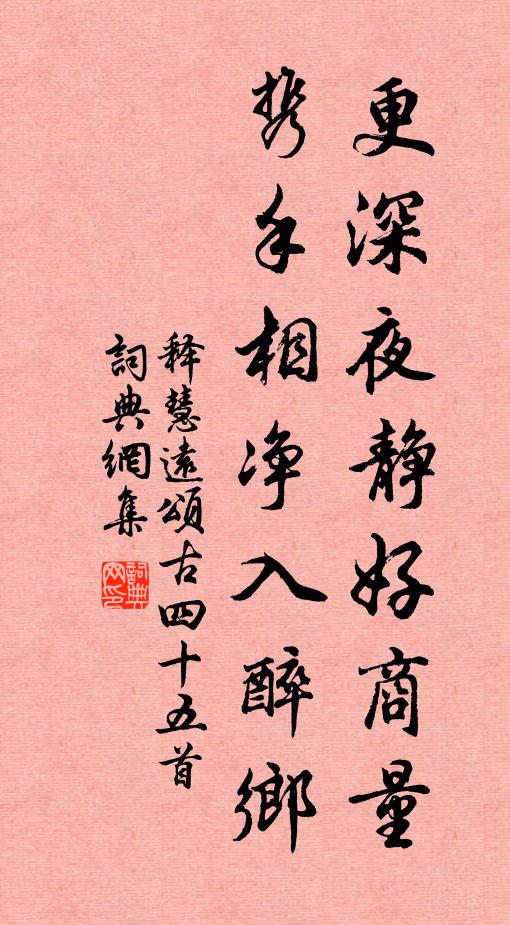 更深夜静好商量
携手相净入醉鄉
释慧遠頌古四十五首
詞典網集
詞典網印